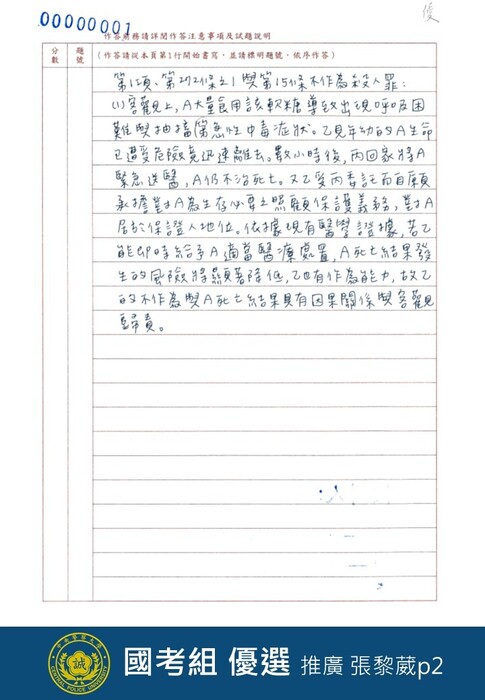 優
00000001
作答前務請詳閱作答注意事項及試題說明
分數
題號
（作答請從本頁第1行開始書寫，並請標明題號，依序作答）
第1項、第272條之1與第15條不作為殺人罪：
(1)客觀上，A大量食用該軟糖導致出現呼吸困
難與抽搐等急性中毒症狀。乙見年幼的A生命
已遭受危險竟迅速離去。數小時後，丙回家將A
緊急送醫，A仍不治死亡。又乙受丙委託而自願
承擔對A為生存必要之照顧保護義務，對A
居於保證人地位。依據現有醫學證據，若乙
能即時給予A適當醫療處置，A死亡結果發
生的風險將顯著降低，乙也有作為能力，故乙
的不作為與A死亡結果具有因果關係與客觀
歸責。
中央警察大學
誠
CENTRAL POLICE UNIVERSITY
國考組 優選 推廣 張黎葳p2